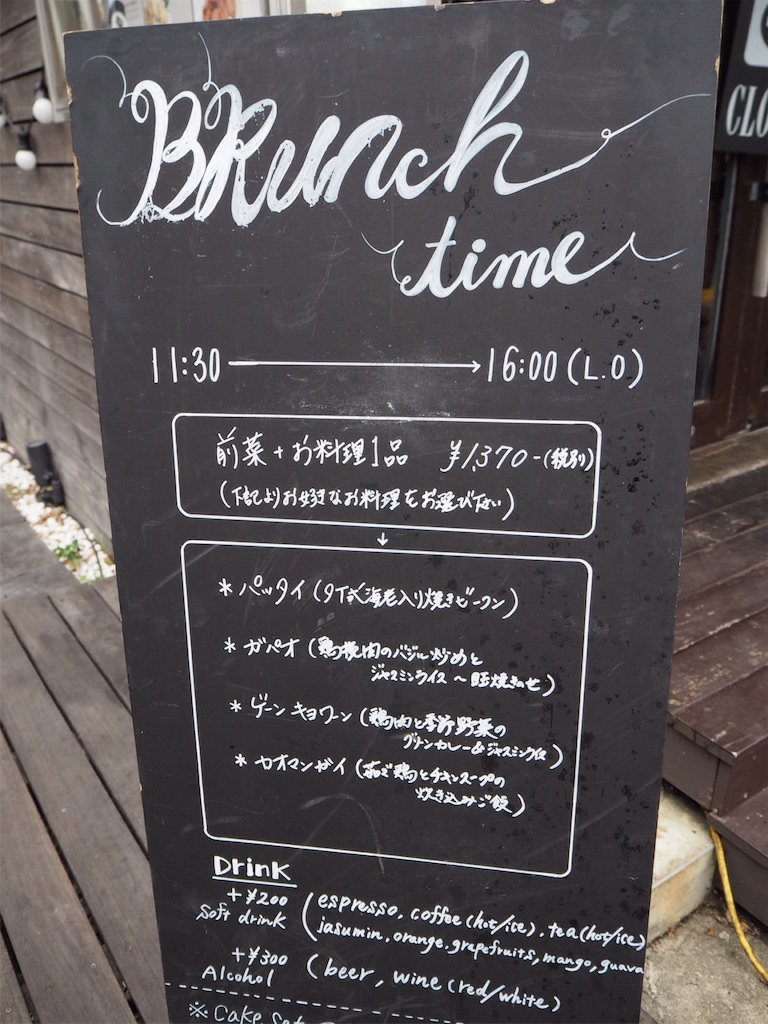 BRunch
time
CLO
11:30 → 16:00 (L.O)
前菜+お料理1品 ¥1,370-(税別)
(下記よりお好きなお料理をお選び下さい)
↓
* パッタイ (タイ式海老入り焼きビーフン)
* ガパオ (鶏挽肉のバジル炒めと
ジャスミンライス〜目玉焼きのせ)
* ゲーンキョワーン (鶏肉と季節野菜の
グリーンカレー&ジャスミンライス)
* カオマンガイ (茹で鶏とチキンスープの
炊き込みご飯)
Drink
+¥200 (espresso, coffee (hot/ice), tea (hot/ice)
Soft drink jasumin, orange, grapefruits, mango, guava
+¥300 (beer, wine (red/white)
Alcohol
※ Cake Set